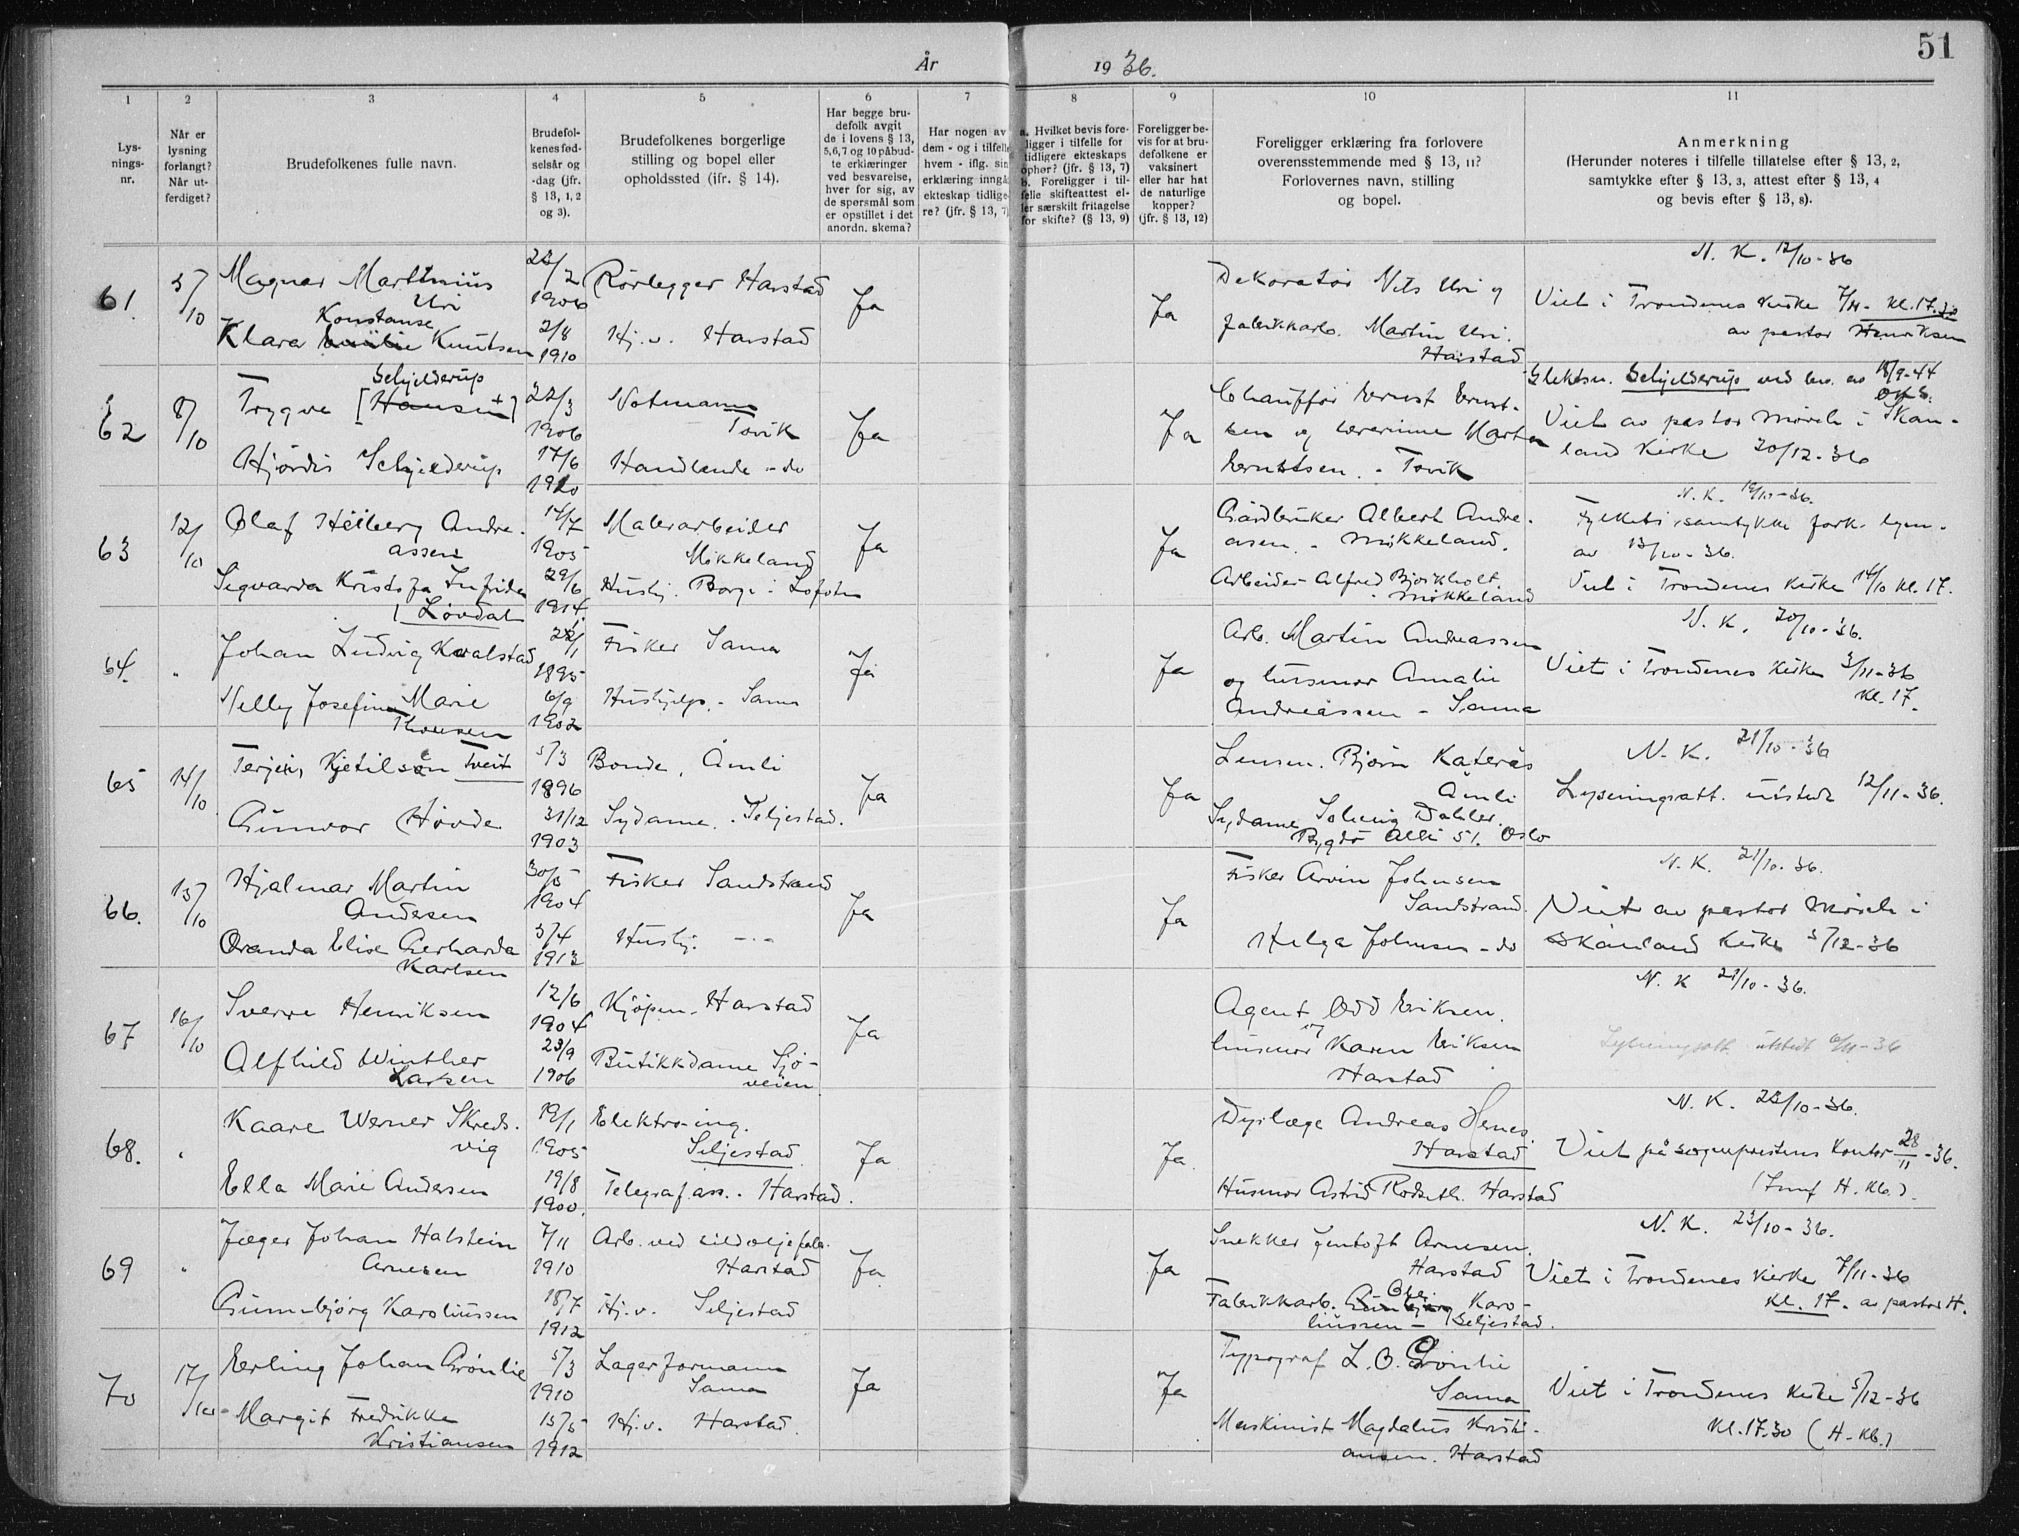 51
År 1936.
1 2 3 4 5 6 7 8 9 10 11
Lysningsnr.
Når er lysning forlangt? Når utferdiget?
Brudefolkenes fulle navn.
Brudefolkenes fødselsår og -dag (jfr. § 13, 1, 2 og 3).
Brudefolkenes borgerlige stilling og bopel eller opholdssted (ifr. § 14).
Har begge brudefolk avgit de i lovens § 13, 5,6,7 og 10 påbudte erklæringer ved besvarelse, hver for sig, av de spørsmål som er opstillet i det anordn. skema?
Har nogen av dem - og i tilfelle hvem - iflg. sin erklæring inngå ekteskap tidligere? (jfr. § 13, 7)
a. Hvilket bevis foreligger i tilfelle for tidligere ekteskaps ophør? (jfr. § 13, 7) b. Foreligger i tilfelle skifteattest eller særskilt fritagelse for skifte? (§ 13, 9)
Foreligger bevis for at brudefolkene er vaksinert eller har hat de naturlige kopper? (jfr. § 13, 12)
Foreligger erklæring fra forlovere overensstemmende med § 13, 11? Forlovernes navn, stilling og bopel.
Anmerkning (Herunder noteres i tilfelle tillatelse efter § 13, 2, samtykke efter § 13, 3, attest efter § 13, 4 og bevis efter § 13, 8).
61. 5/10 Magnar Marthinius Uri 1906 Rørlegger Harstad Ja Ja Dekoratør Nils Uri og fabrikkarb. Martin Uri. Harstad N. K. 12/10-36
Viet i Trondenes Kirke 7/11- kl. 17.30 av pastor Henriksen
Klara Konstanse Knutsen 2/8 1910 Hj. v. Harstad
62 8/10 Trygve [Hansen] Schjelderup 22/3 1906 Notmann Tovik Ja Ja Chauffør Ernst Erntsen og lærerinne Tovik
Slektsn. Schjelderup ved bev. av 18/9-44
Viet av pastor Mørch i Skanland Kirke 20/12-36
Hjørdis Schjelderup 17/6 1910 Handlende - do
63 12/10 Olaf Heiberg Andreassen 14/7 1905 Malerarbeider Mökkeland Ja Ja Gårdbruker Albert Andreasen. - Mökkeland.
N. K. 19/10-36.
Fylkets samtykke fork. lysn. av 13/10-36.
Sigvarda Kristofa Løvdal 29/6 1914. Hushj. Borge i Lofoten
Arbeider Alfred Bjørkholt. Mökkeland
Viet i Trondenes Kirke 14/10 kl. 17.
64. " Johan Ludvig Kvalstad 1895 Fisker Sama Ja Ja Arb. Martin Andreassen og husmor Amalie Andreassen - Sama
N. K. 20/10-36.
Viet i Trondenes Kirke 3/11-36 kl. 17.
Nelly Josefine Marie 6/9 1902 Hushjelp. - Sama
65 14/10 Terjei, Kjetilsøn Tveit 5/3 1896 Bonde, Åmli Ja Ja Lensm. Bjørn Kateraas Åmli
N. K. 21/10-36
Lysningsatt. utstedt 12/11-36.
Gunvor Hovde 31/12 1903 Sydame. Seljestad.
Sydame Solveig Dahler. Bygdö Allé 51. Oslo
66. 15/10 Hjalmar Martin Andersen 30/5 1904 Fisker Sandstrand Ja Ja Fisker Arvin Johnsen Sandstrand.
N. K. 21/10-36.
Viet av pastor Mørch i Skånland Kirke 5/12-36
Elise Gerharda Karlsen 5/4 1913 Hushj. -"-
Helga Johnsen - do
67 16/10 Sverre Henriksen 12/6 1904 Kjøpm. Harstad Ja Agent Odd Eriksen. husmor Karen Eriksen Harstad
N. K 21/10-36.
Lysningsatt utstedt 6/11-36
Alfhild Winther Larsen 23/9 1906 Butikkdame Sjøveien
68. " Kaare Werner Skredsvig 19/1 1905 Elektro-ing. Seljestad Ja Ja Dyrlæge Andreas Henes Harstad
N. K. 23/10-36.
Viet på sogneprestens Kontor 28/11-36. (Innf H. Kb.).
Ella Marie Andersen 19/8 1900. Telegraf.ass.. Harstad.
Husmor Astrid Rodseth. Harstad
69 " Jæger Johan Halstein Arnesen 7/11 1910 Arb. ved sildoljefabr. Harstad Ja Ja Snekker Jentoft Arnesen. Harstad
N. K. 23/10-36.
Viet i Trondenes Kirke 7/11-36 kl. 17. av pastor H.
Gunnbjørg Karoliussen 18/7 1912 Hj. v. Seljestad
Fabrikkarb. Karoliussen - Seljestad.
70 17/10- Erling Johan Grønlie 5/3 1910 Lagerformann Sama Ja Ja Typograf L. O. Grønlie Sama
Viet i Trondenes Kirke 5/12-36 kl. 17.30 (H-Kb.)
Margit Fredrikke Kristiansen 15/5 1912 Hj. v. Harstad.
Maskinist Magdalus Kristiansen. Harstad